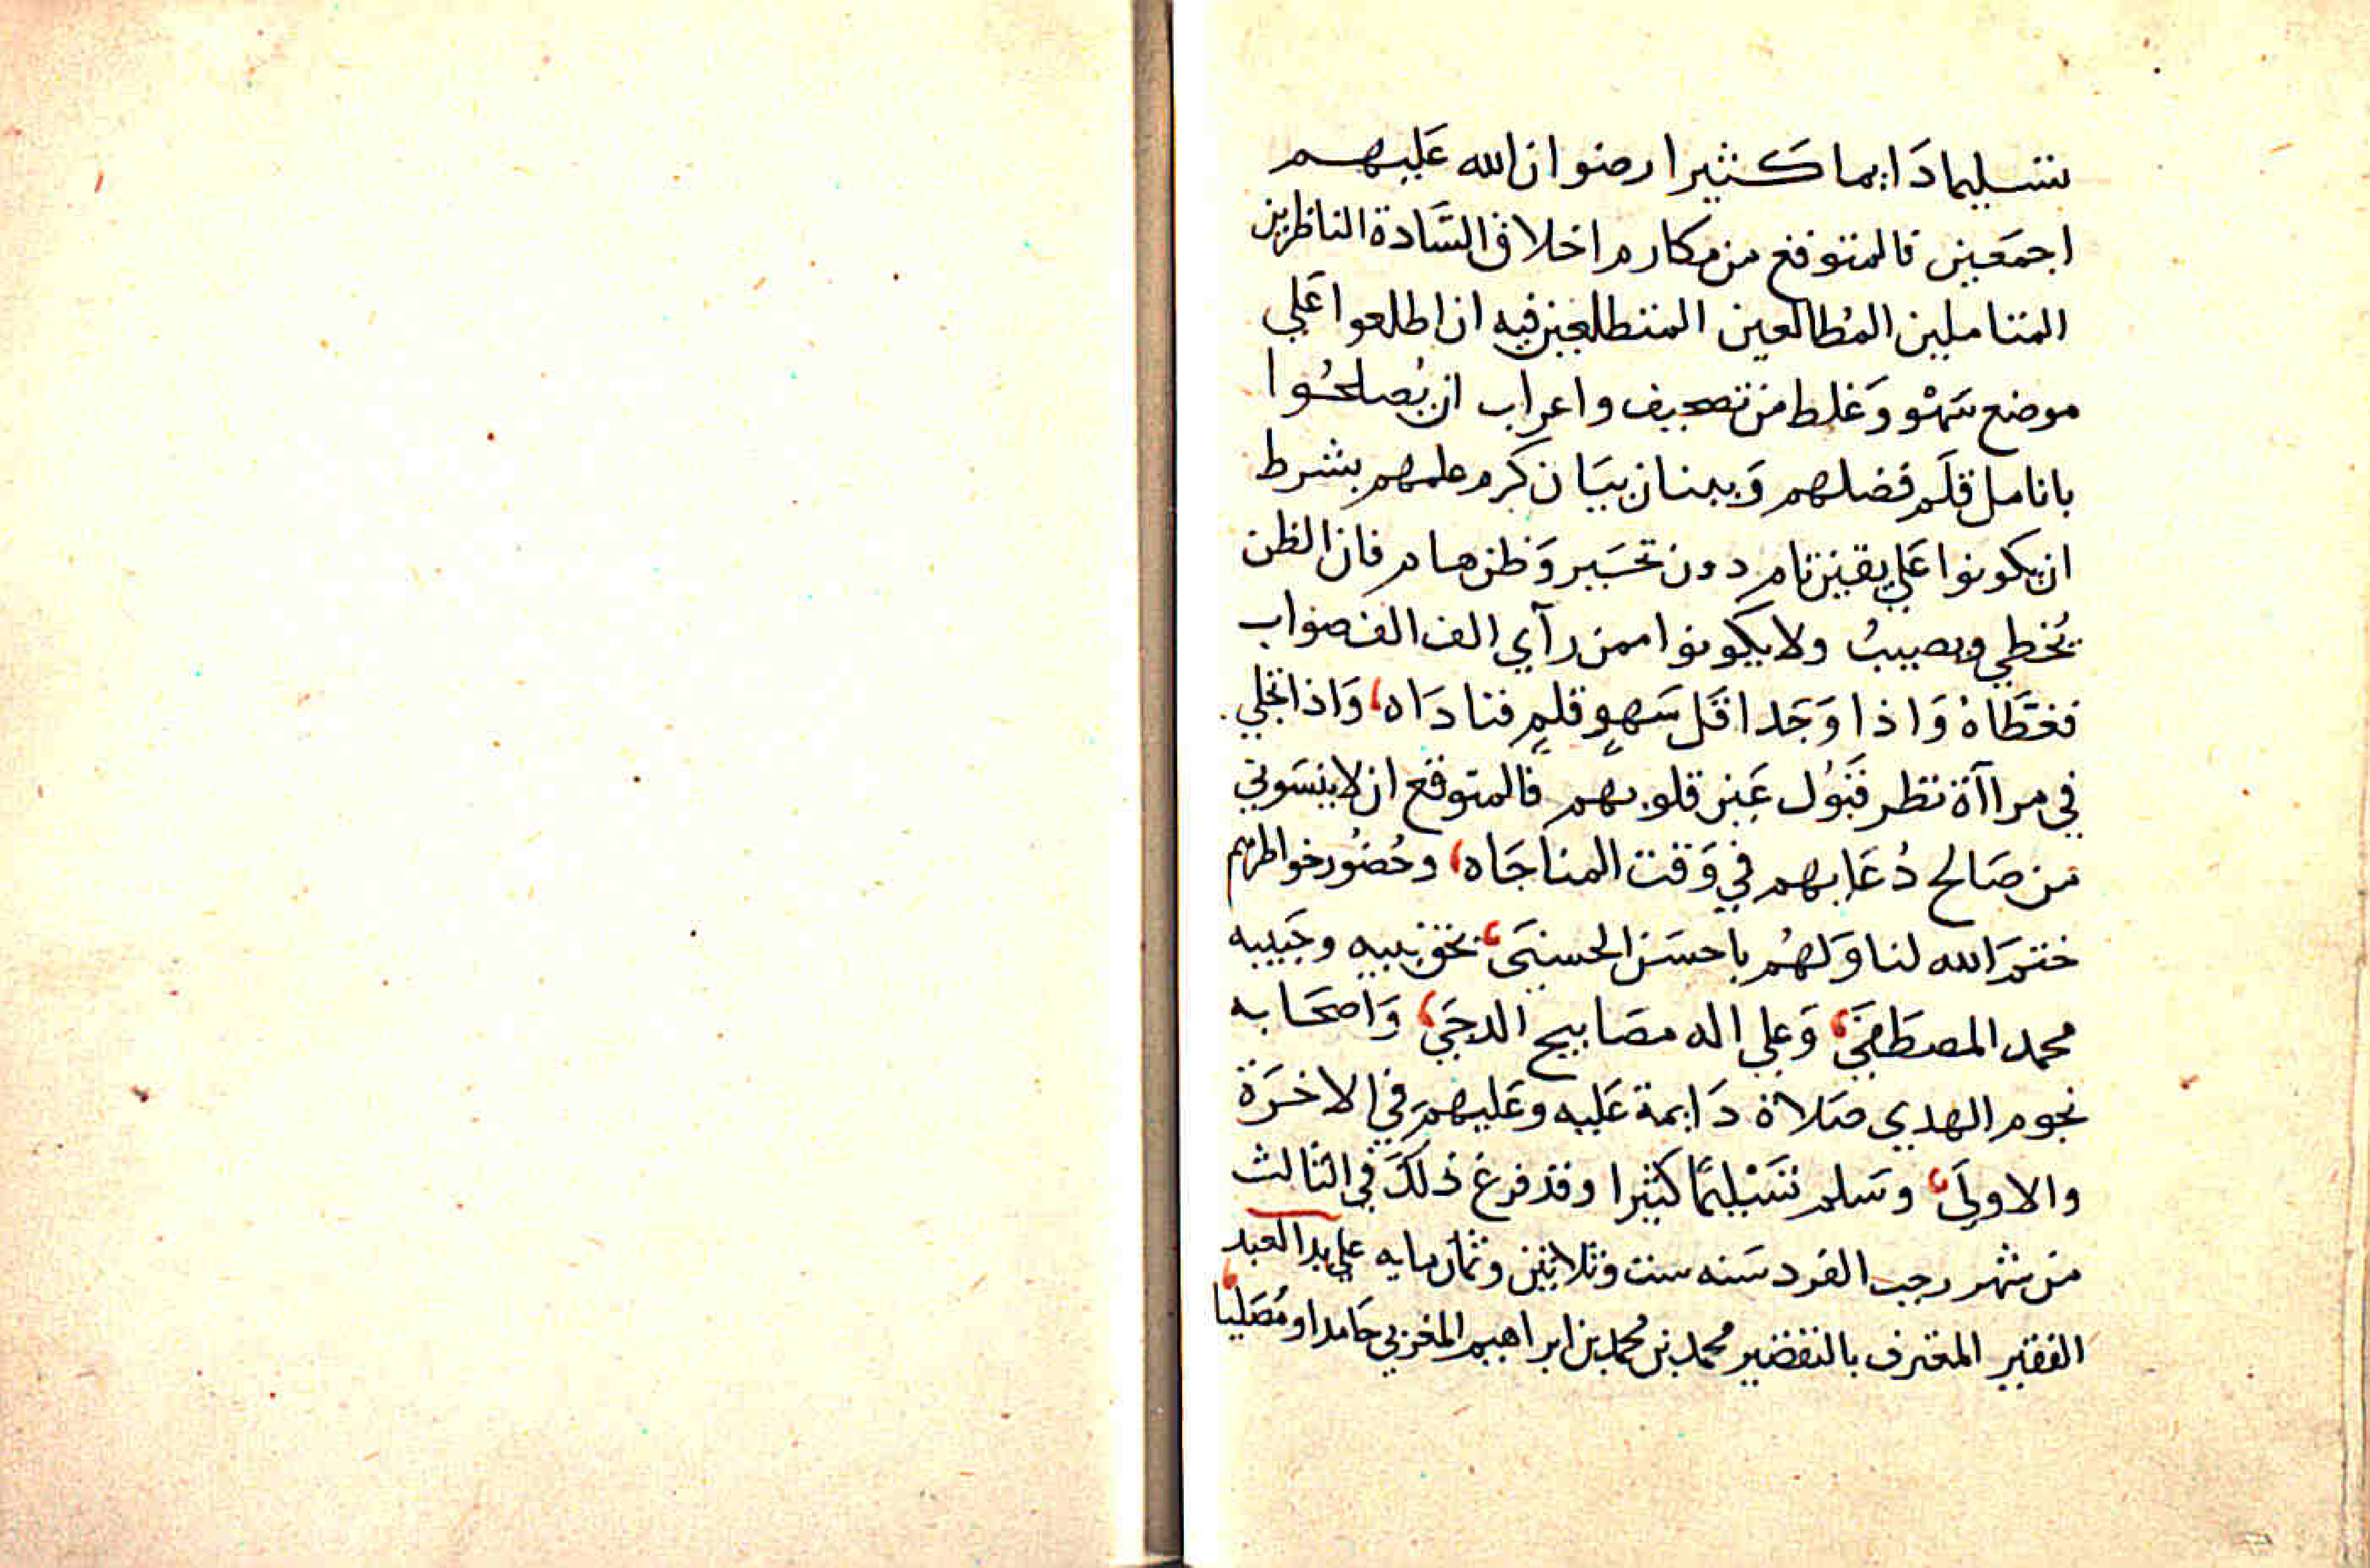 تسليما دَايما كَثيرا رضوان الله عَليهم
اجمَعين فالمتوقع من مكارم اخلاق السَّادة الناظرين
المتاملين المُطالعين المتطلعين فيه ان اطلعوا عَلي
موضع سَهْو وَغلط من تصحيف واعراب ان يُصلحُوا
بانامل قلَم فضلهم وَببنان بيَان كرم علمهم بشرط
ان يكونوا عَلي يقين تام دون تحسَير وَظن هام فان الظن
يُخطي ويصيبُ ولا يكونوا ممن رآي الف الف صواب
فغطَّاهُ وَاذا وَجَد اقَل سَهوٍ قلمٍ فنادَاه، وَاذا تجلي
في مراآة نظر قبُول عَين قلوبهم فالمتوقع ان لا ينسَوني
من صَالح دُعَايهم في وَقت المناجَاه، وحُضُور خواطرهم
ختمَ الله لنا وَلهُم باحسَن الحسنَى، بحق نبيه وحَبيبه
محمد المصطَفَى، وَعلي اله مصَابيح الدجَي، وَاصحَابه
نجوم الهدي صَلاة دَايمة عَليه وعَليهمَ في الاخرَة
والاولَي، وسَلم تسَْليمًا كثيرا وقد فرغ ذلكَ في الثالث
من شهر رجب الفرد سَنه ست وثلاثين وثمان مايه علي يد العبد
الفقير المعترف بالتقصير محمد بن محمد بن ابراهيم المغربي حَامدا ومُصَليا،